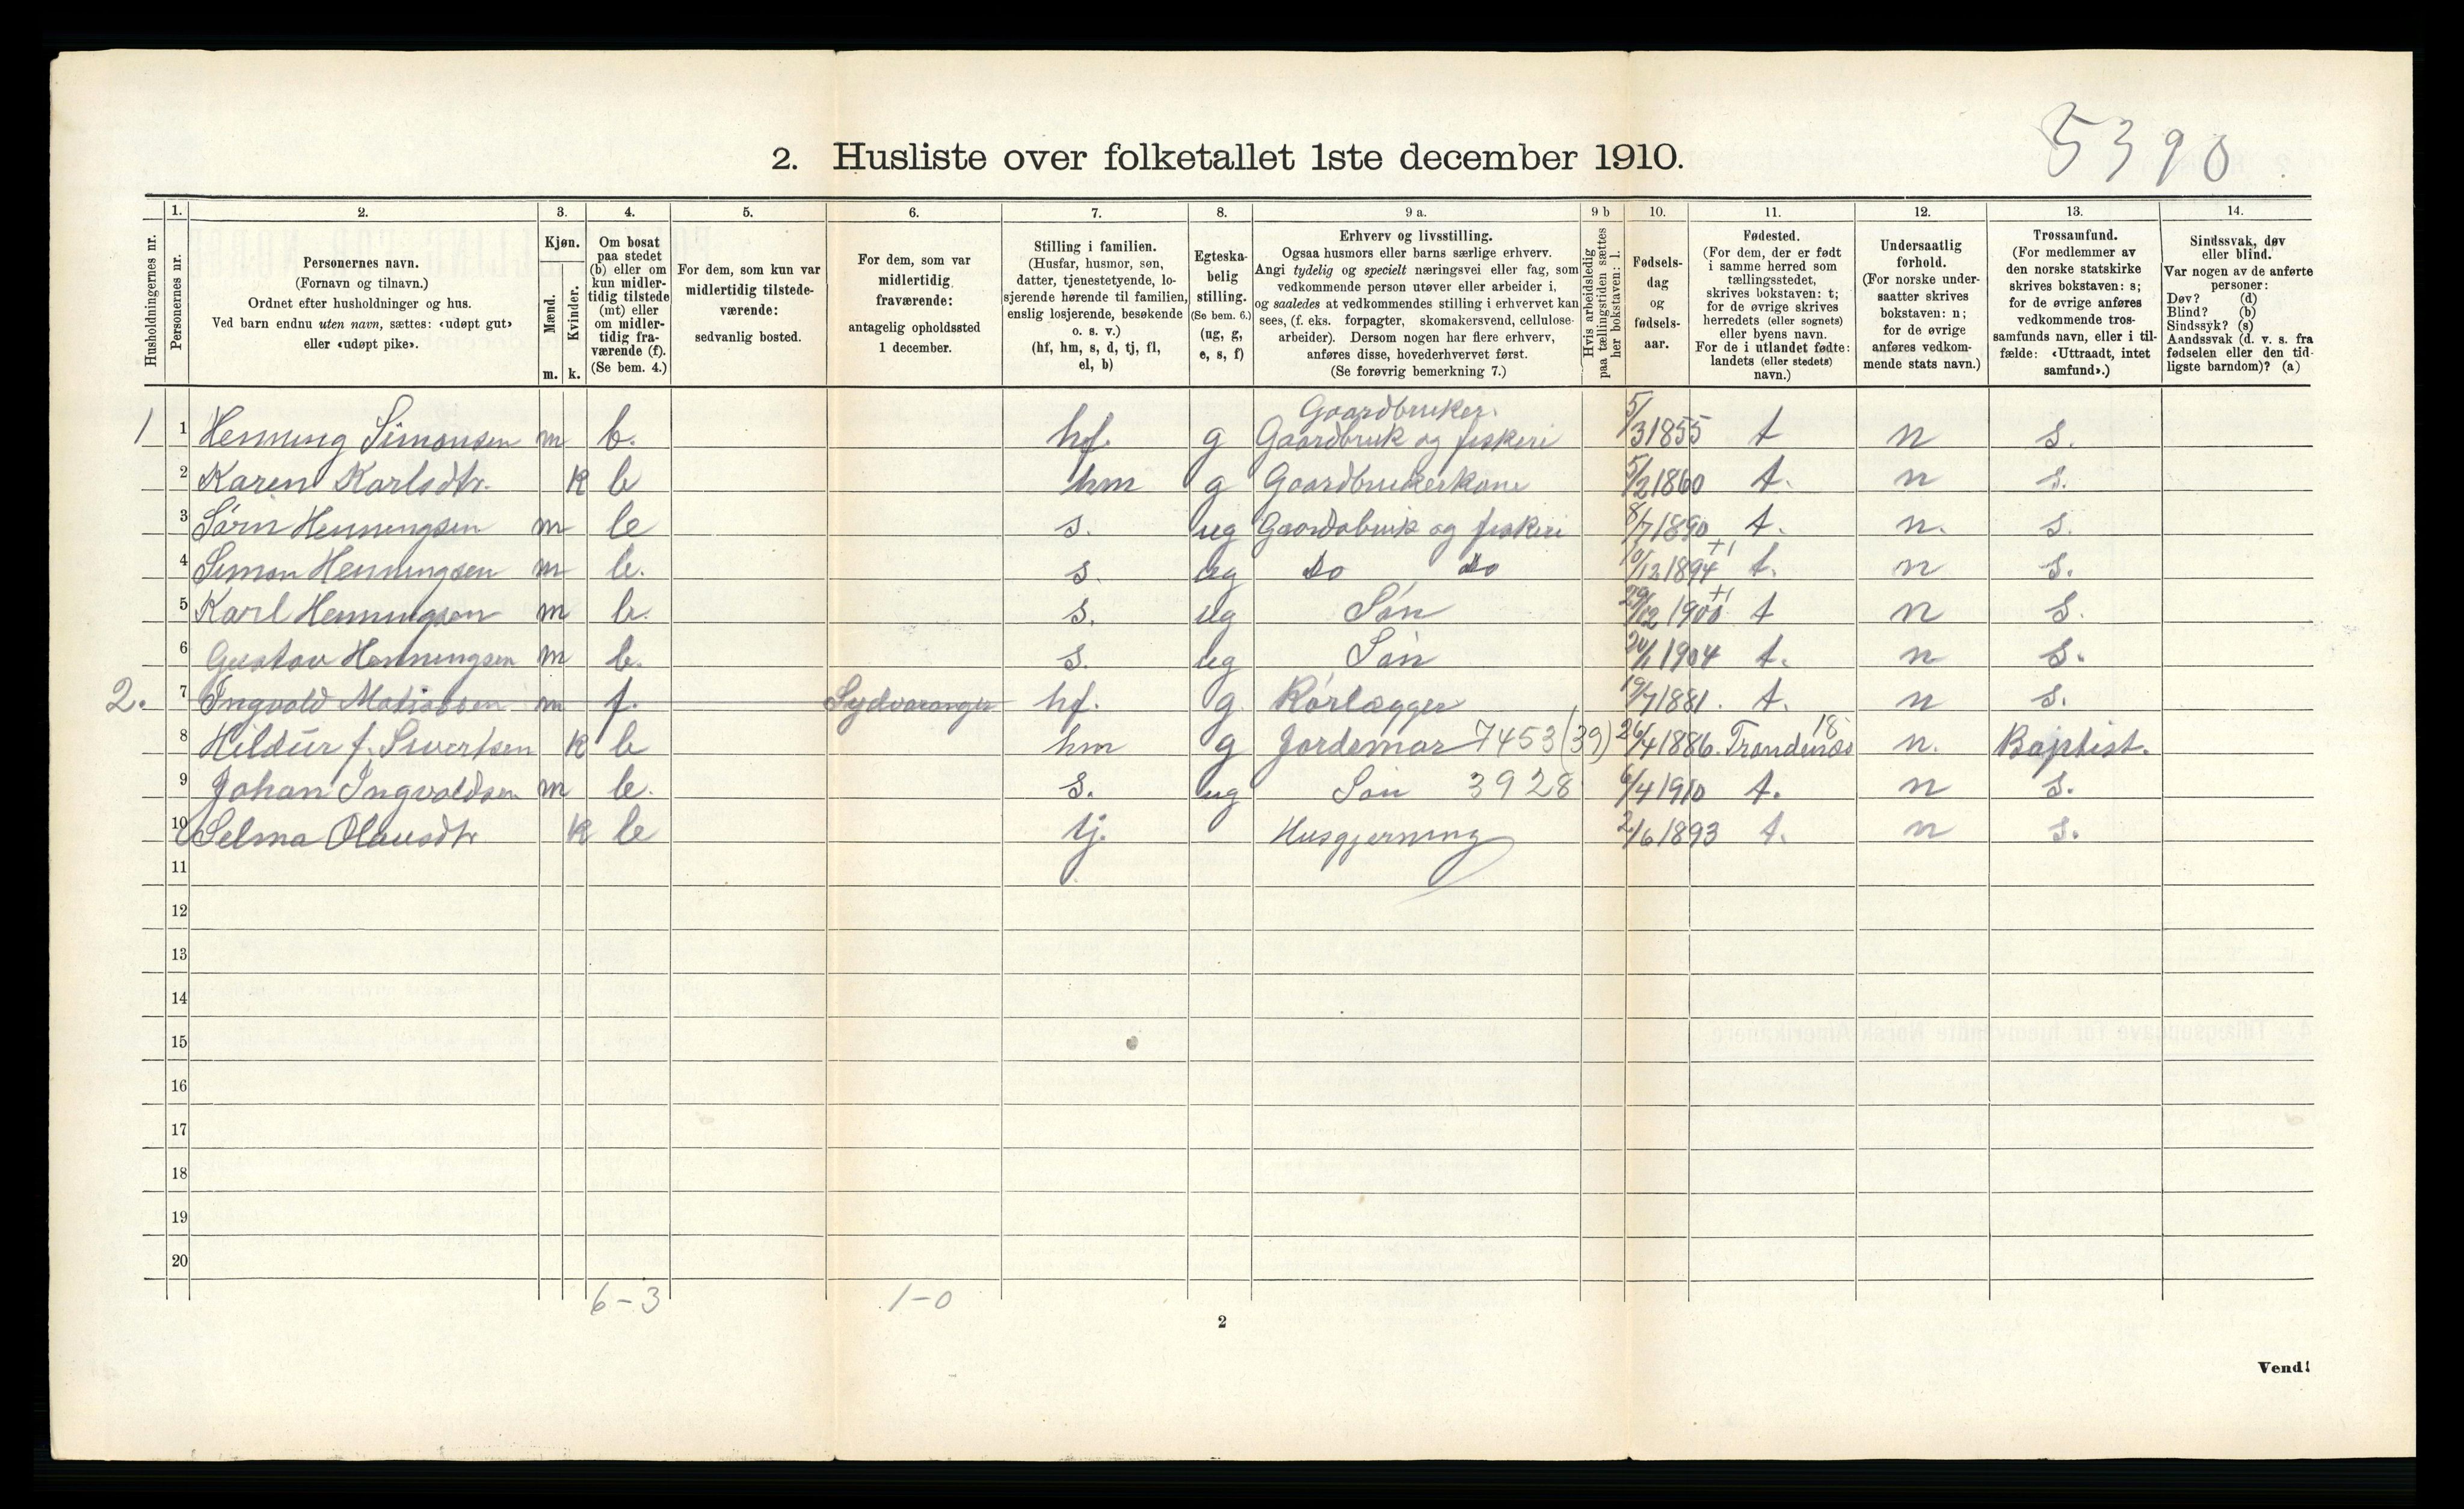 5390
2. Husliste over folketallet 1ste december 1910.
Husholdningernes nr.
1. Personernes nr.
2. Personernes navn. (Fornavn og tilnavn.) Ordnet efter husholdninger og hus. Ved barn endnu uten navn, sættes: «udøpt gut» eller «udøpt pike».
3. Kjøn. Mænd. m. Kvinder. k.
4. Om bosat paa stedet (b) eller om kun midlertidig tilstede (mt) eller om midlertidig fraværende (f). (Se bem. 4.)
5. For dem, som kun var midlertidig tilstedeværende: sedvanlig bosted.
6. For dem, som var midlertidig fraværende: antagelig opholdssted 1 december.
7. Stilling i familien. (Husfar, husmor, søn, datter, tjenestetyende, losjerende hørende til familien, enslig losjerende, besøkende o. s. v.) (hf, hm, s, d, tj, fl, el, b)
8. Egteskabelig stilling. (Se bem. 6.) (ug, g, e, s, f)
9 a. Erhverv og livsstilling. Ogsaa husmors eller barns særlige erhverv. Angi tydelig og specielt næringsvei eller fag, som vedkommende person utøver eller arbeider i, og saaledes at vedkommendes stilling i erhvervet kan sees, (f. eks. forpagter, skomakersvend, cellulosearbeider). Dersom nogen har flere erhverv, anføres disse, hovederhvervet først. (Se forøvrig bemerkning 7.)
9 b Hvis arbeidsledig paa tællingstiden sættes her bokstaven: l.
10. Fødselsdag og fødselsaar.
11. Fødested. (For dem, der er født i samme herred som tællingsstedet, skrives bokstaven: t; for de øvrige skrives herredets (eller sognets) eller byens navn. For de i utlandet fødte: landets (eller stedets) navn.)
12. Undersaatlig forhold. (For norske undersaatter skrives bokstaven: n; for de øvrige anføres vedkommende stats navn.)
13. Trossamfund. (For medlemmer av den norske statskirke skrives bokstaven: s; for de øvrige anføres vedkommende trossamfunds navn, eller i tilfælde: «Uttraadt, intet samfund».)
14. Sindssvak, døv eller blind. Var nogen av de anførte personer: Døv? (d) Blind? (b) Sindssyk? (s) Aandssvak (d. v. s. fra fødselen eller den tidligste barndom)? (a)
Gaardbruker.
1 1 Henning Simonsen m b. hf. g Gaardbruk og fiskeri 5/3 1855 t n s.
2 Karen Karlsdtr. k b hm g Gaardbrukerkone 5/2 1860 t. n s.
3 Sørn Henningsen m b s. ug Gaardsbruk og fiskeri 8/7 1890 t. n. s.
+1
4 Simon Henningsen m b. s. ug do do 10/12 1894 t. n s.
+1
5 Karl Henningsen m b. s. ug Søn 29/12 1900 t n s.
6 Gustav Henningsen m b. s. ug Søn 24/1 1904 t. n s.
2. 7 Ingvald Matiassen m f. Sydvaranger hf. g. Rørlægger 19/7 1881. t. n s.
8 Hildur f. Sivertsen k b hm g Jordemor 7453 (39) 26/4 1886. Trondenæs 18 n. Baptist.
9 Johan Ingvaldsen m b. s. ug Søn 3928 6/4 1910 t. n s.
10 Selma Olausdtr k b tj. Husgjerning 2/6 1893 t. n s.
11
12
13
14
15
16
17
18
19
20
6-3 1-0
2
Vend!